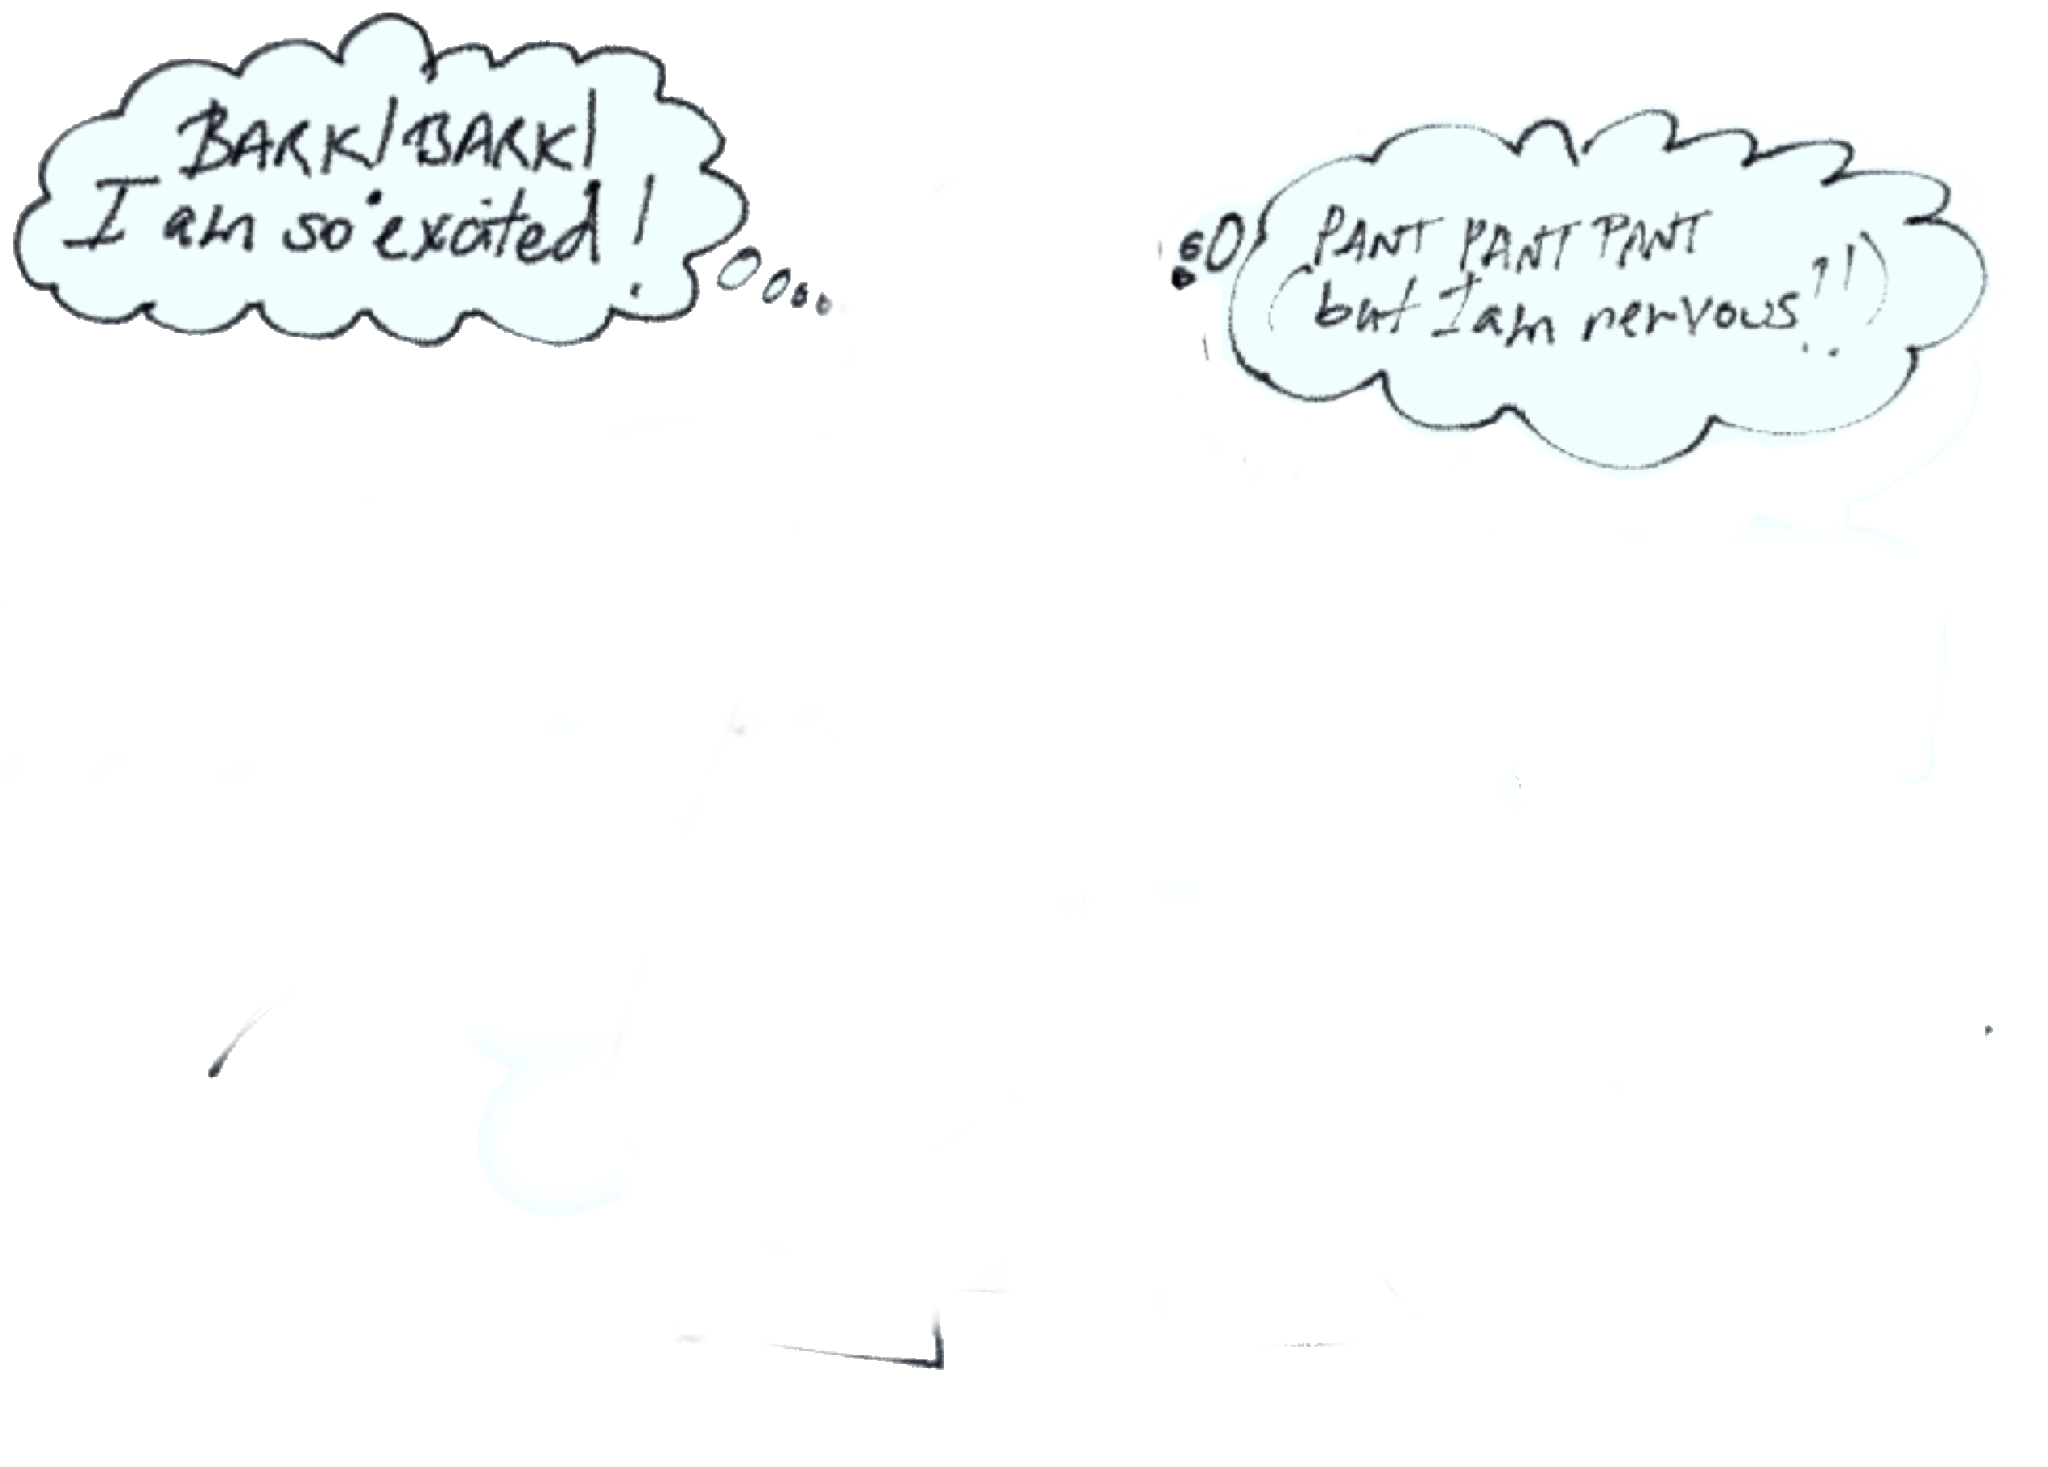 BARK! BARK!
I am so excited!
PANT PANT PANT
but I am nervous!!